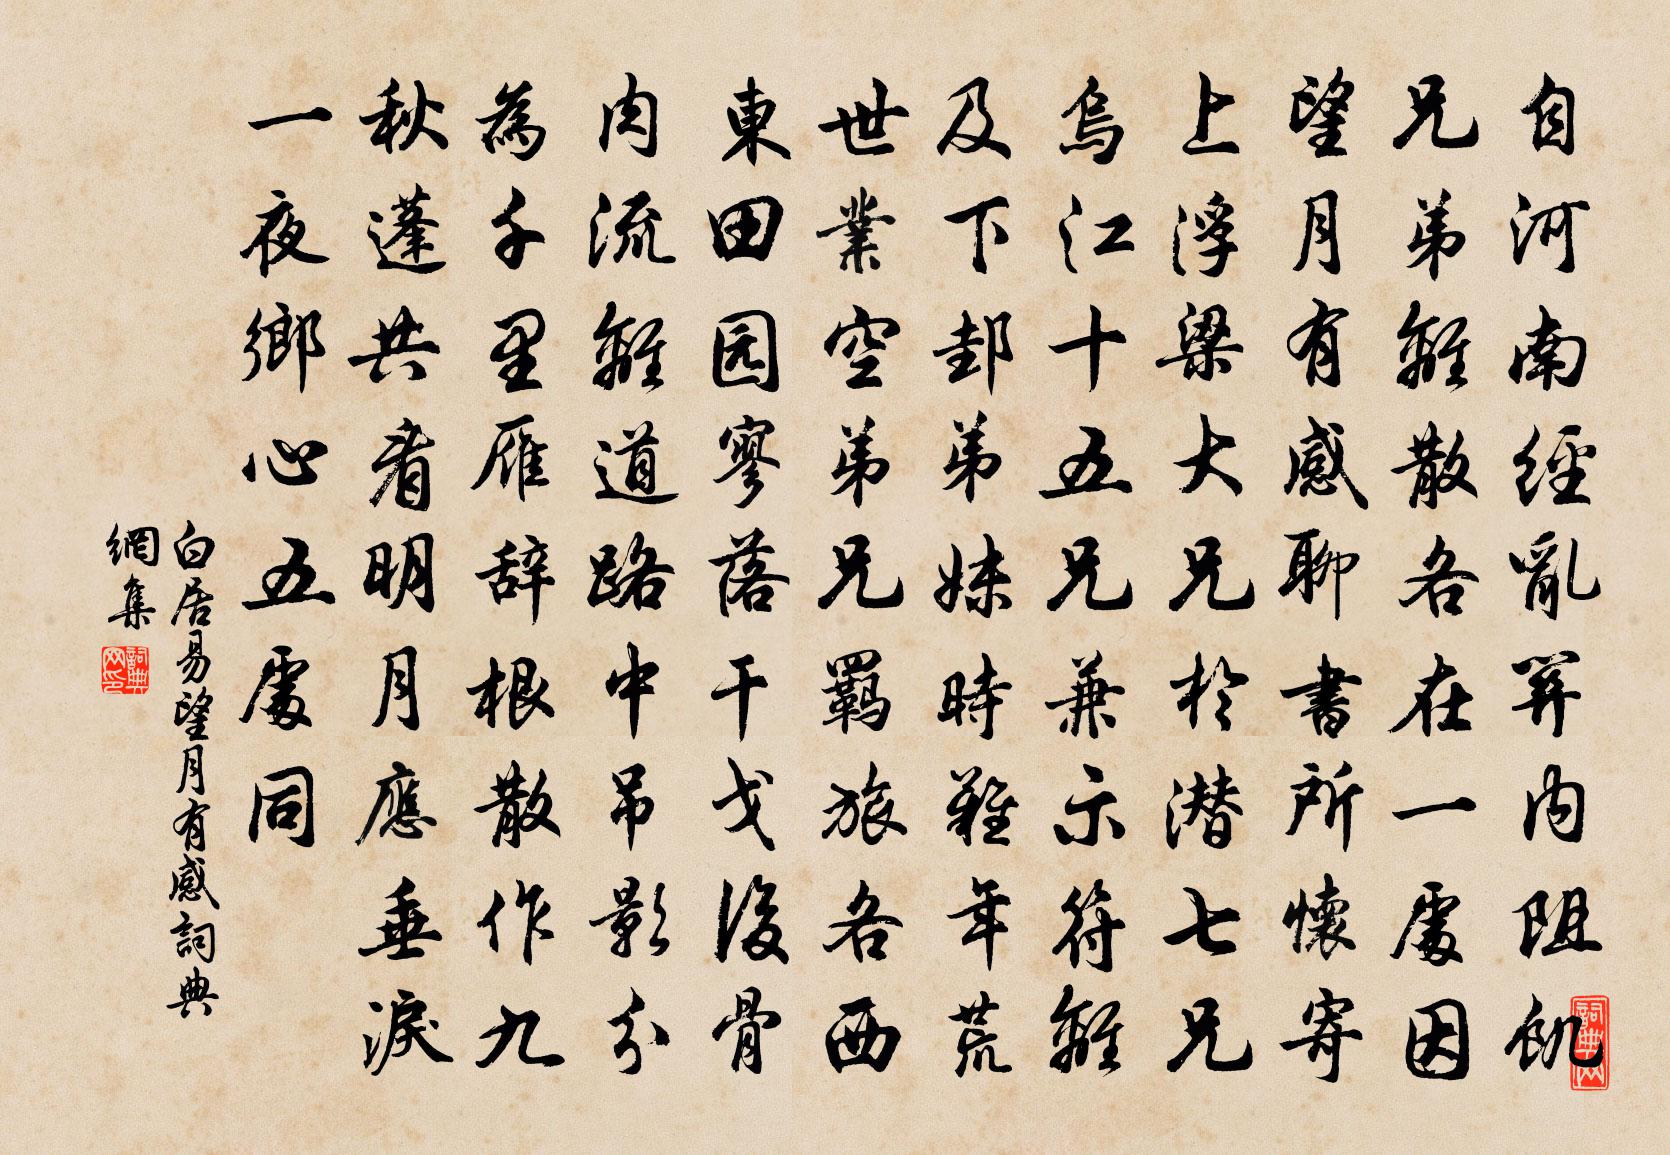 自河南經亂關内阻飢
兄弟離散各在一處因
望月有感聊書所懷寄
上浮梁大兄於潜七兄
烏江十五兄兼示符離
及下邽弟妹時難年荒
世業空弟兄羈旅各西
東田园寥落干戈後骨
肉流離道路中吊影分
為千里雁辞根散作九
秋蓬共看明月應垂淚
一夜鄉心五處同
白居易望月有感詞典
網集
詞典网印
詞典网